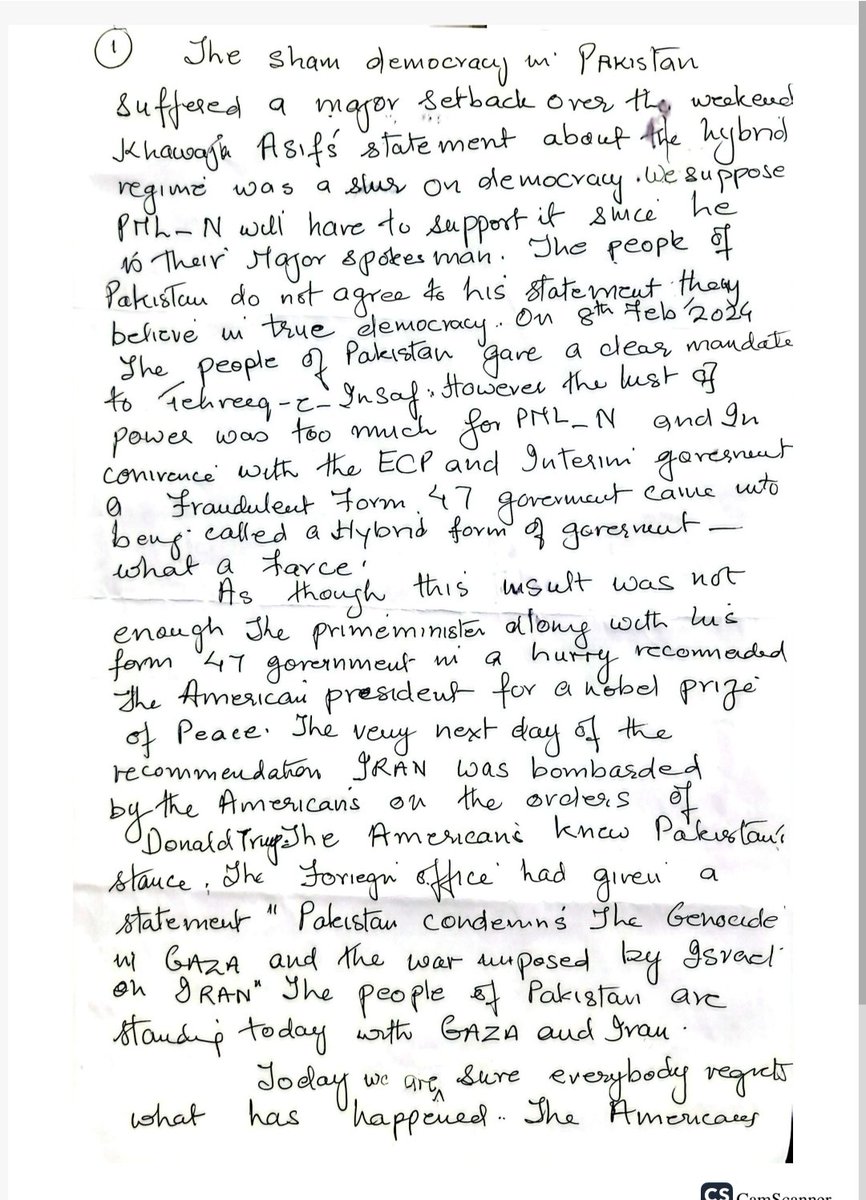 ① The sham democracy in PAKISTan
suffered a major setback over the weekend
Khawaja Asif's statement about the hybrid
regime was a slur on democracy. We suppose
PML-N will have to support it since he
is their Major spokesman. The people of
Pakistan do not agree to his statement they
believe in true democracy. On 8th Feb 2024
The people of Pakistan gave a clear mandate
to Tehreeq-e-Insaf. However the lust of
power was too much for PML-N and In
conivence with the ECP and Interim government
a Fraudulent Form 47 goverment came into
being called a Hybrid form of government —
what a farce.
As though this insult was not
enough The primeminister along with his
form 47 government in a hurry recommeded
the American president for a nobel prize
of Peace. The very next day of the
recommendation IRAN was bombarded
by the Americans on the orders of
Donald Trup. The Americans knew Pakistan's
stance, The Foriegn office had given a
statement "Pakistan condemns The Genocide
in GAZA and the war imposed by Israel
on IRAN" The people of Pakistan are
standing today with GAZA and Iran.
Today we are sure everybody regrets
what has happened.. The Americans
CS CamScanner